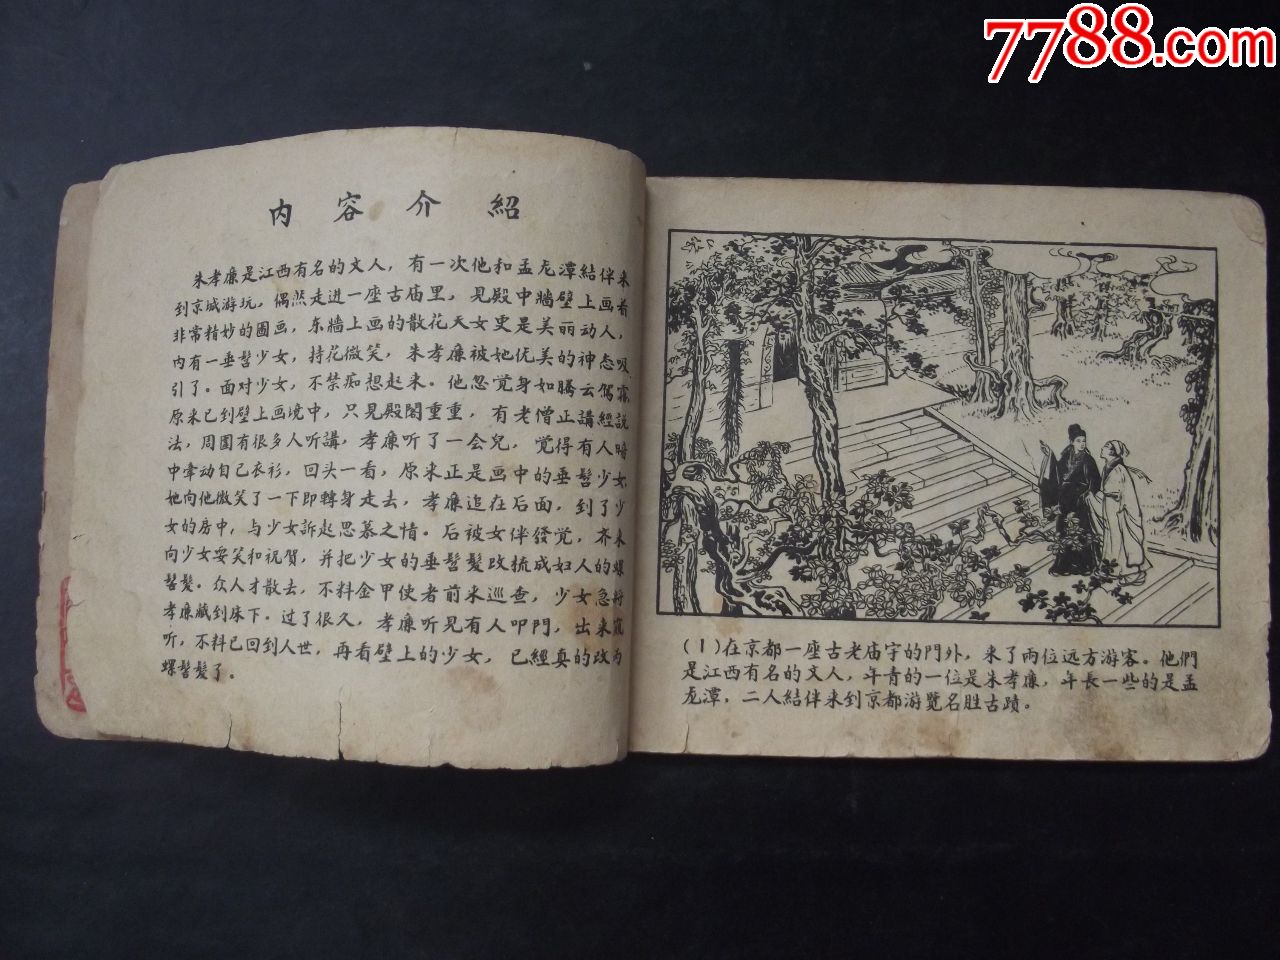 7788.com
内容介紹
朱孝廉是江西有名的文人，有一次他和孟龙潭結伴来
到京城游玩，偶然走进一座古庙里，見殿中牆壁上画着
非常精妙的圖画，东牆上画的散花天女更是美丽动人，
内有一垂髫少女，持花微笑，朱孝廉被她优美的神态吸
引了。面对少女，不禁痴想起来。他忽觉身如腾云駕霧
原来已到壁上画境中，只見殿閣重重，有老僧正講經說
法，周圍有很多人听講，孝廉听了一会兒，觉得有人暗
中牽动自己衣衫，回头一看，原来正是画中的垂髫少女
她向他微笑了一下即轉身走去，孝廉追在后面，到了少
女的房中，与少女訴起思慕之情。后被女伴發觉，齐来
向少女耍笑和祝賀，并把少女的垂髫髮改梳成妇人的螺
髻髮。众人才散去，不料金甲使者前来巡查，少女急将
孝廉藏到床下。过了很久，孝廉听見有人叩門，出来窺
听，不料已回到人世，再看壁上的少女，已經真的改为
螺髻髮了。
(1)在京都一座古老庙宇的門外，来了兩位远方游客。他們
是江西有名的文人，年青的一位是朱孝廉，年長一些的是孟
龙潭，二人結伴来到京都游覽名胜古蹟。